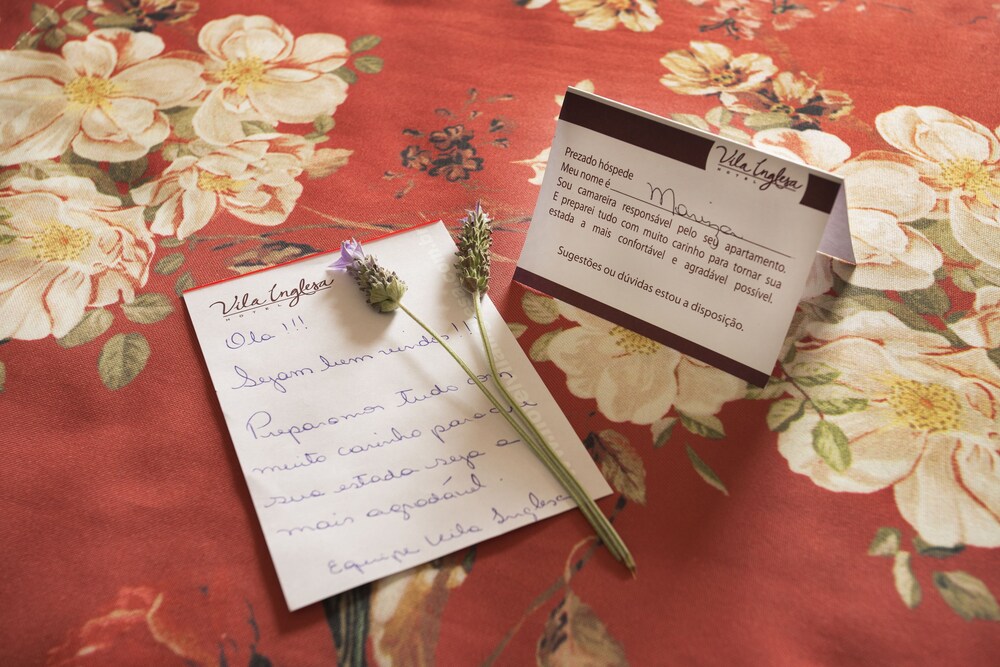 Vila Inglesa
HOTEL
Ola !!!
Sejam bem vindos!!!
Preparamos tudo com
muito carinho para que
sua estada seja a
mais agradável.
Equipe Vila Inglesa
Vila Inglesa
HOTEL
Prezado hóspede
Meu nome é Mariza
Sou camareira responsável pelo seu apartamento.
E preparei tudo com muito carinho para tornar sua
estada a mais confortável e agradável possível.
Sugestões ou dúvidas estou a disposição.